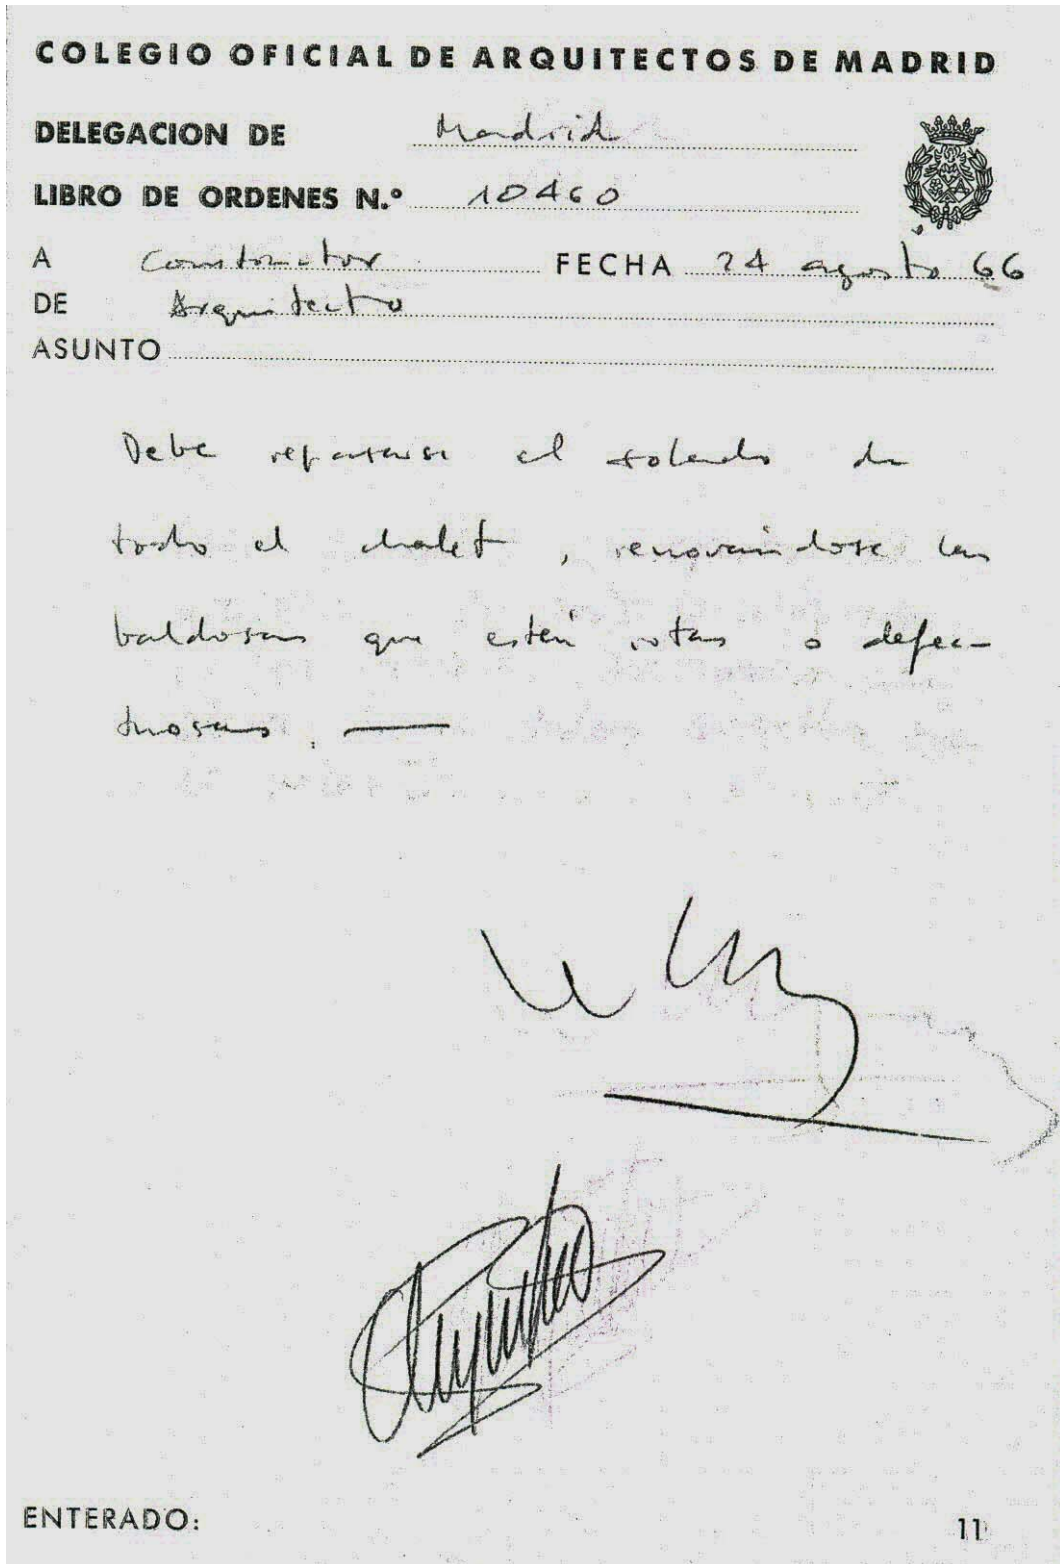 COLEGIO OFICIAL DE ARQUITECTOS DE MADRID
DELEGACION DE Madrid
LIBRO DE ORDENES N.º 10460
A Constructor FECHA 24 agosto 66
DE Arquitecto
ASUNTO
Debe repasarse el solado de
todo el chalet, renovándose las
baldosas que estén rotas o defec-
tuosas. —
ENTERADO:
11